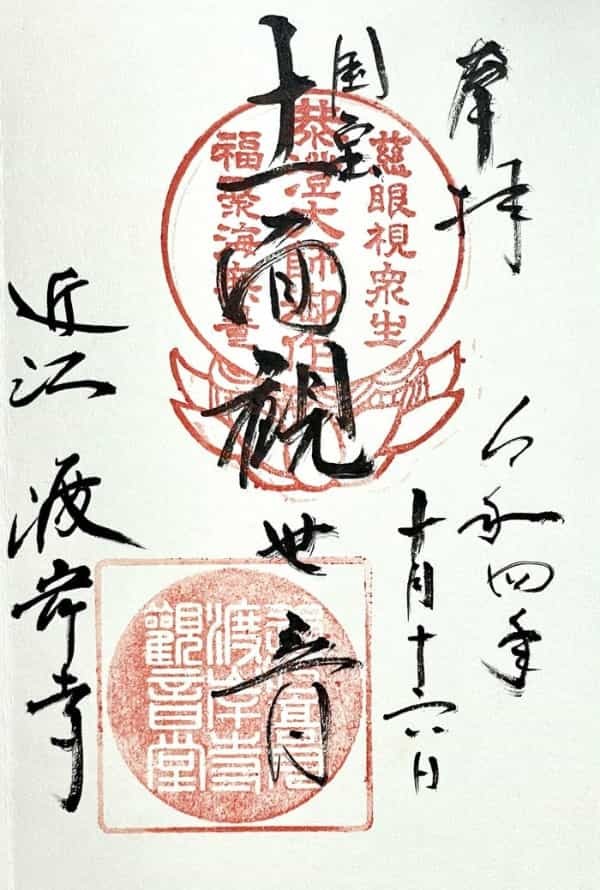 奉拝
令和四年
十月十六日
国宝
十一面観世音
近江 渡岸寺
慈眼視衆生
泰澄大師御作
福聚海無量
渡岸寺
觀音堂